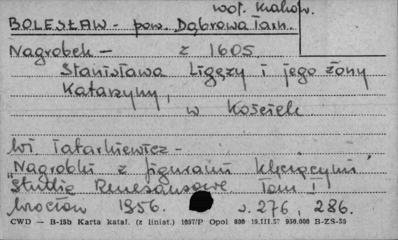 woj. Kraków.
BOLESŁAW - pow. Dąbrowa Tarn.
Nagrobek - z 1605
Stanisława Ligęzy i jego żony
Katarzyny,
w Kościele
Wł. Tatarkiewicz -
"Nagrobki z figurami klęczącymi"
Studia Renesansowe Tom I
Wrocław 1956. s. 276, 286.
CWD — B-15b Karta katal. (z liniat.) 1657/P Opol 830 19.III.57 950.000 B-ZS-55